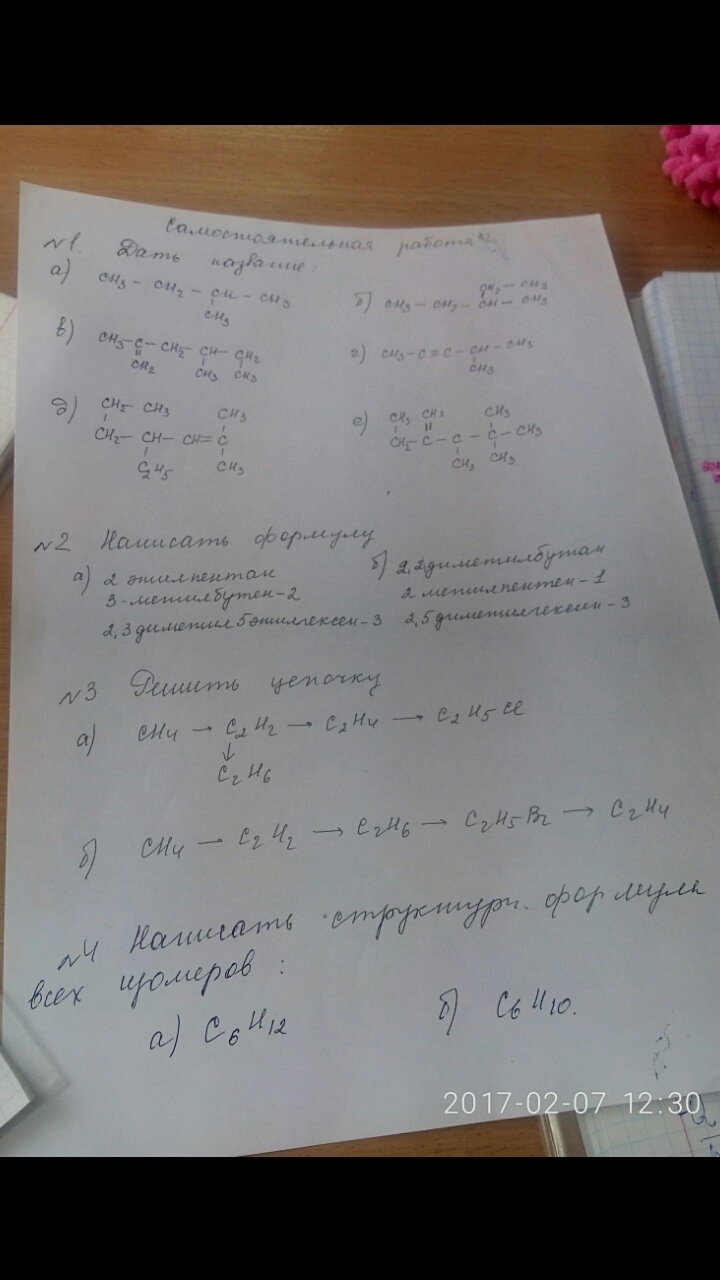 Самостоятельная работа
№1. Дать название:
а) CH3 – CH2 – CH – CH3
CH3
б) CH3 – CH2 – CH – CH3
CH2 – CH3
в) CH3 – C – CH2 – CH – CH2
CH2 CH3 CH3
г) CH3 – C ≡ C – CH – CH3
CH3
д) CH2 – CH3 CH3
CH2 – CH – CH = C
C2H5 CH3
е) CH3 CH2 CH3
CH2 – C – C – C – CH3
CH3 CH3
№2 Написать формулу
а) 2 этилпентан
3-метилбутен-2
2,3 диметил 5 этилгексен-3
б) 2,2 диметилбутан
2 метилпентен-1
2,5 диметилгексин-3
№3 Решить цепочку
а) CH4 → C2H2 → C2H4 → C2H5Cl
↓
C2H6
б) CH4 → C2H2 → C2H6 → C2H5Br → C2H4
№4 Написать структурн. формулы
всех изомеров :
а) C6H12
б) C6H10.
2017-02-07 12:30